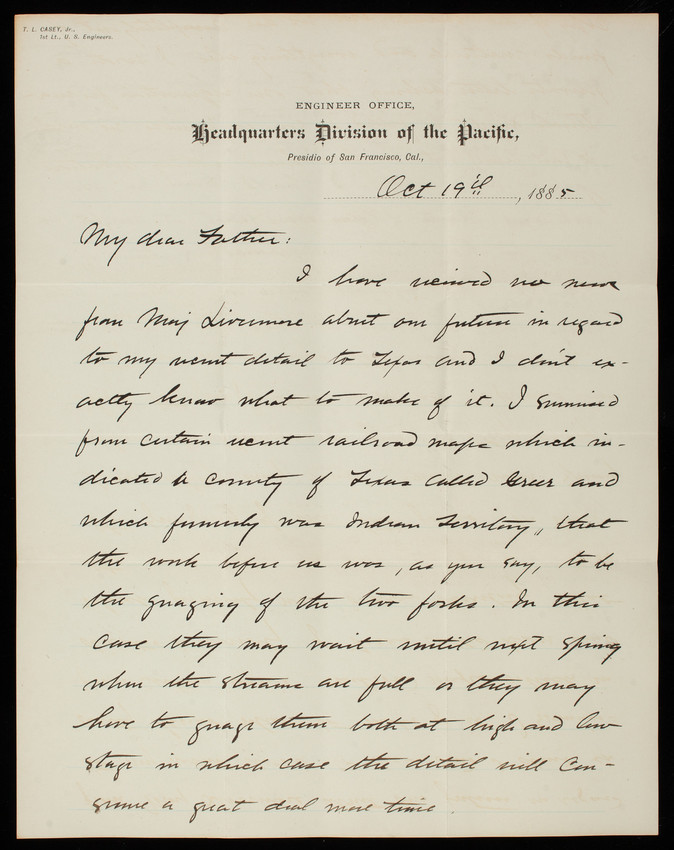 T. L. CASEY, Jr.,
1st Lt., U. S. Engineers.
ENGINEER OFFICE,
Headquarters Division of the Pacific,
Presidio of San Francisco, Cal.,
Oct 19th, 1885
My dear Father:
I have received no news
from Maj Livermore about our future in regard
to my recent detail to Texas and I don't ex-
actly know what to make of it. I surmised
from certain recent railroad maps which in-
dicated a county of Texas called Greer and
which formerly was Indian Territory, that
the work before us was, as you say, to be
the guaging of the two forks. In this
case they may wait until next spring
when the streams are full or they may
have to guage them both at high and low
stage in which case the detail will con-
sume a great deal more time